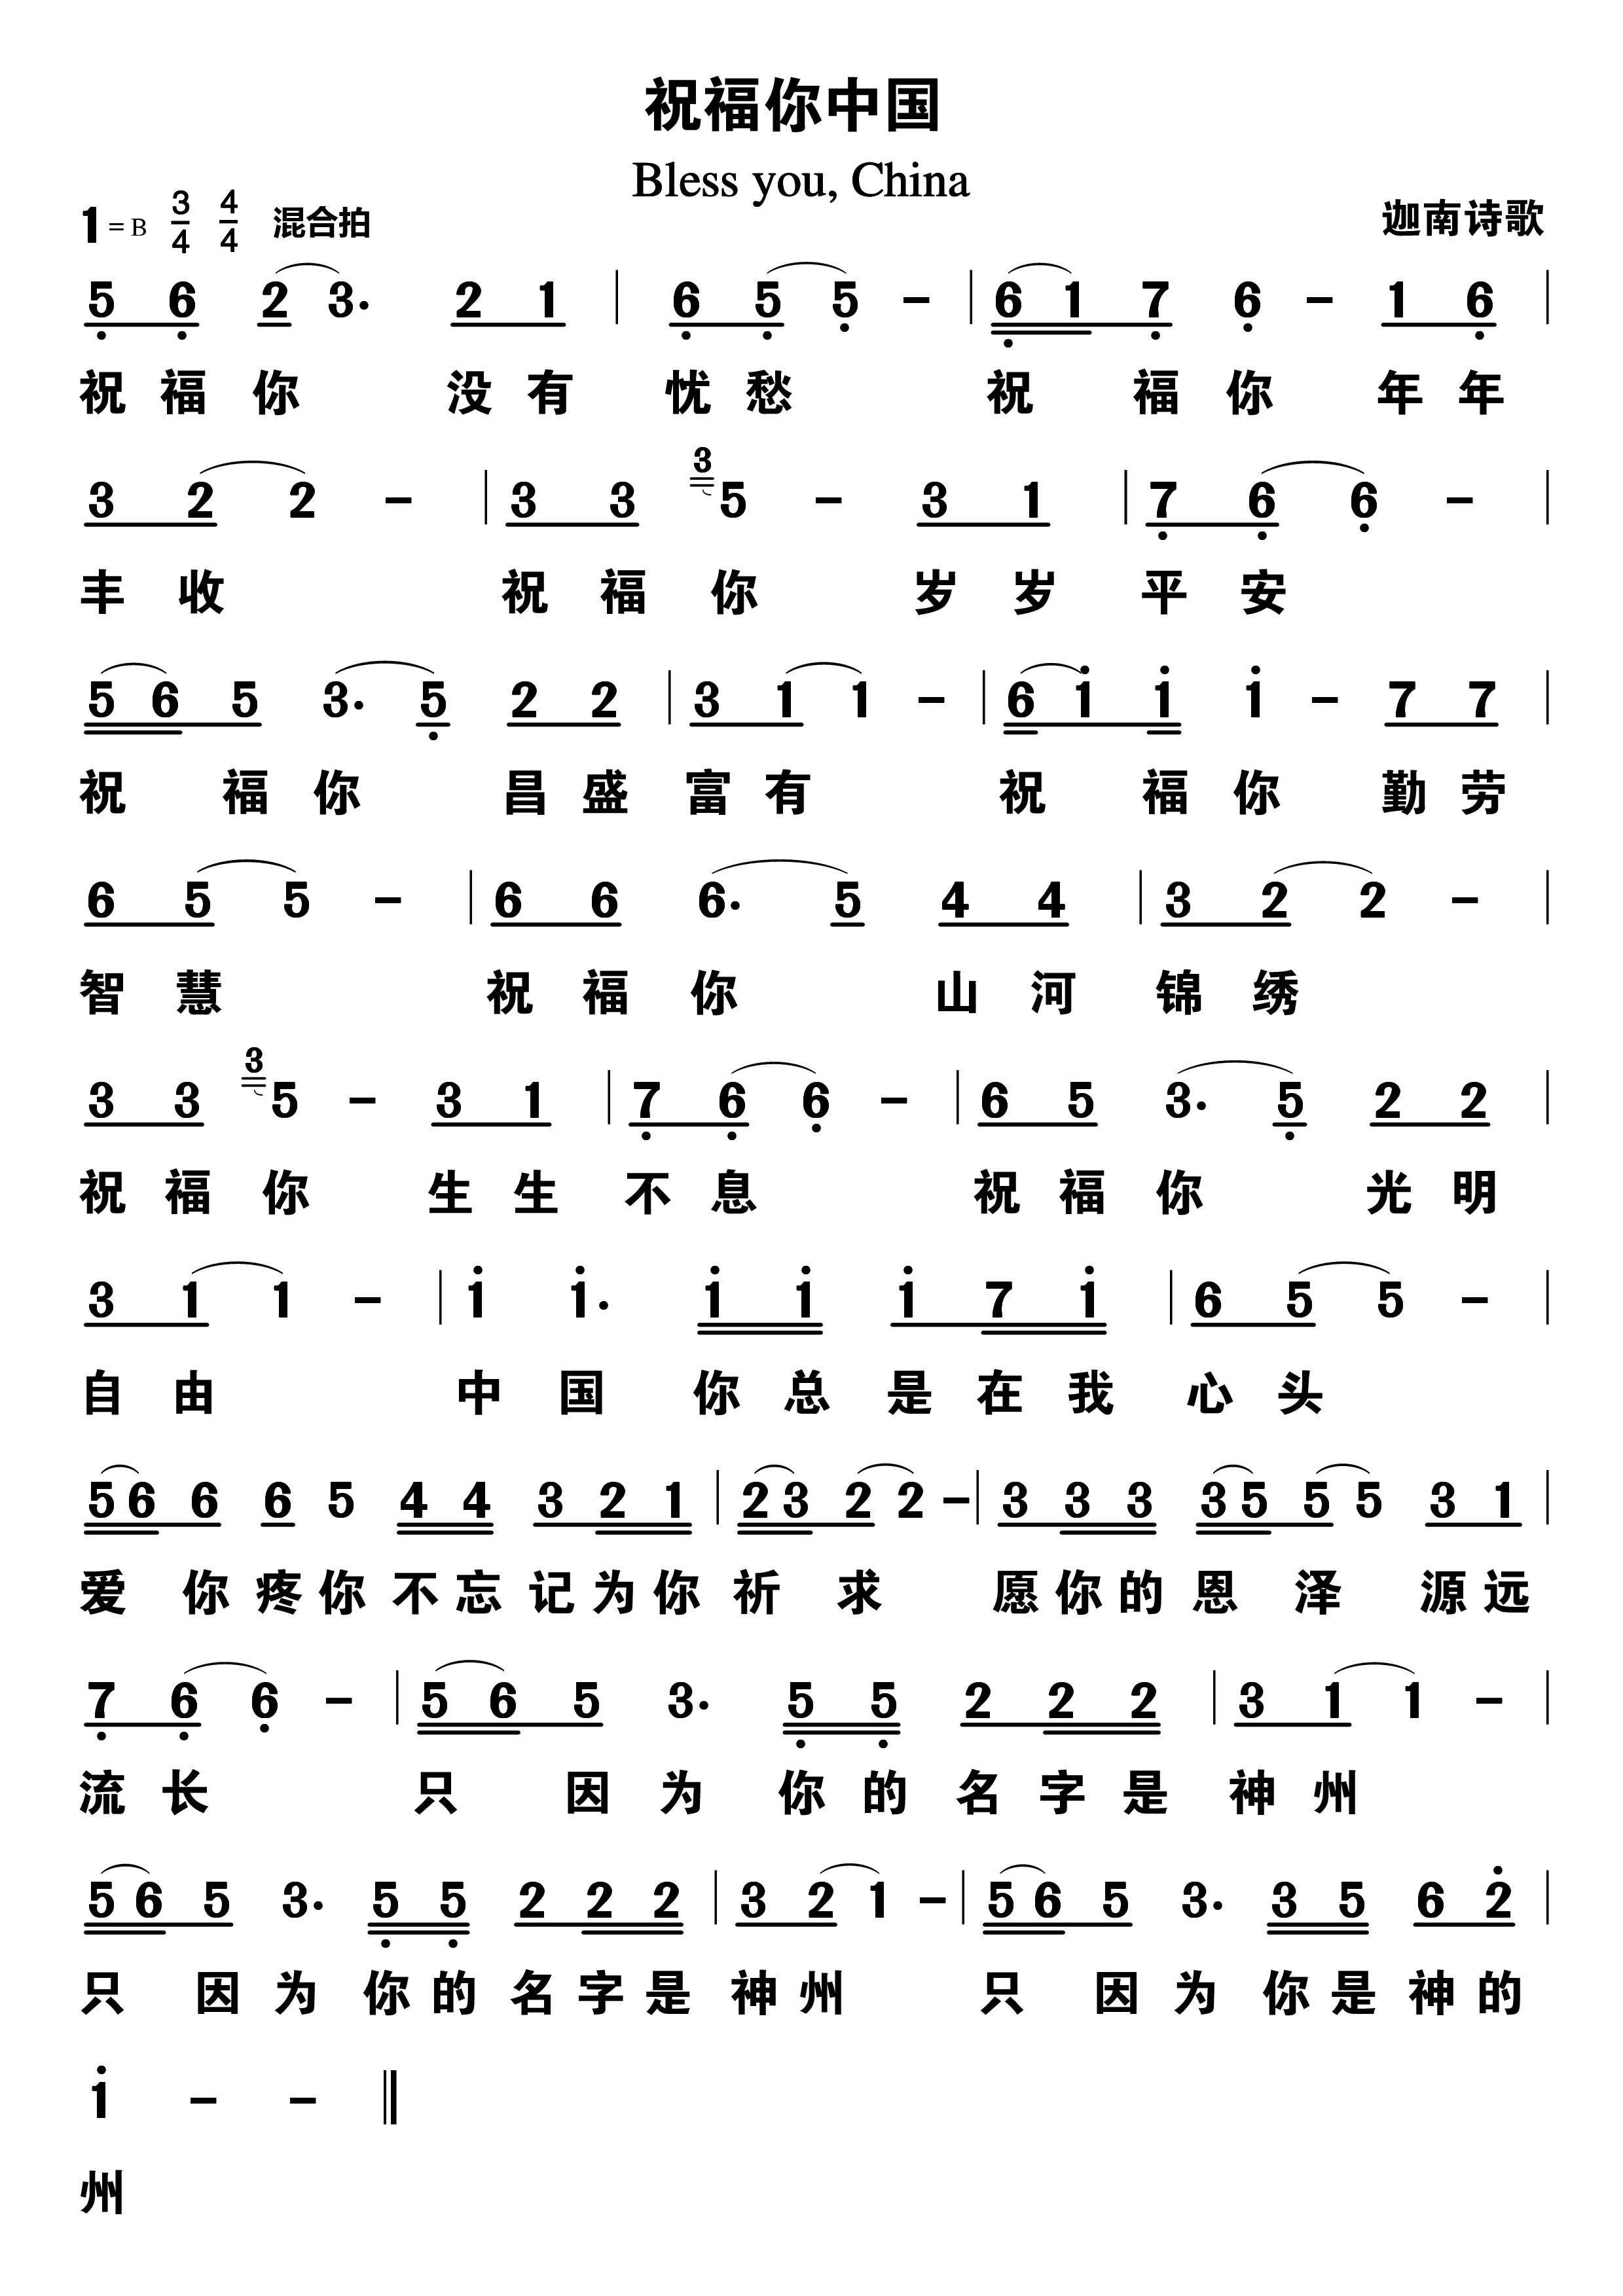 祝福你中国
Bless you, China
1=B 3/4 4/4 混合拍 迦南诗歌
5 6 2 3. 2 1 | 6 5 5 - | 6 1 7 6 - 1 6 |
祝福你 没有 忧愁 祝福你 年年
3 2 2 - | 3 3 3 5 - 3 1 | 7 6 6 - |
丰收 祝福你 岁岁 平安
5 6 5 3. 5 2 2 | 3 1 1 - | 6 1 1 1 - 7 7 |
祝福你 昌盛 富有 祝福你 勤劳
6 5 5 - | 6 6 6. 5 4 4 | 3 2 2 - |
智慧 祝福你 山河 锦绣
3 3 3 5 - 3 1 | 7 6 6 - | 6 5 3. 5 2 2 |
祝福你 生生 不息 祝福你 光明
3 1 1 - | 1 1. 1 1 1 7 1 | 6 5 5 - |
自由 中国 你总是在我 心头
5 6 6 6 5 4 4 3 2 1 | 2 3 2 2 - | 3 3 3 3 5 5 5 3 1 |
爱你疼你不忘记为你 祈求 愿你的恩泽 源远
7 6 6 - | 5 6 5 3. 5 5 2 2 2 | 3 1 1 - |
流长 只因为 你的名字是 神州
5 6 5 3. 5 5 2 2 2 | 3 2 1 - | 5 6 5 3. 3 5 6 2 |
只因为 你的名字是 神州 只因为 你是神的
1 - - ‖
州